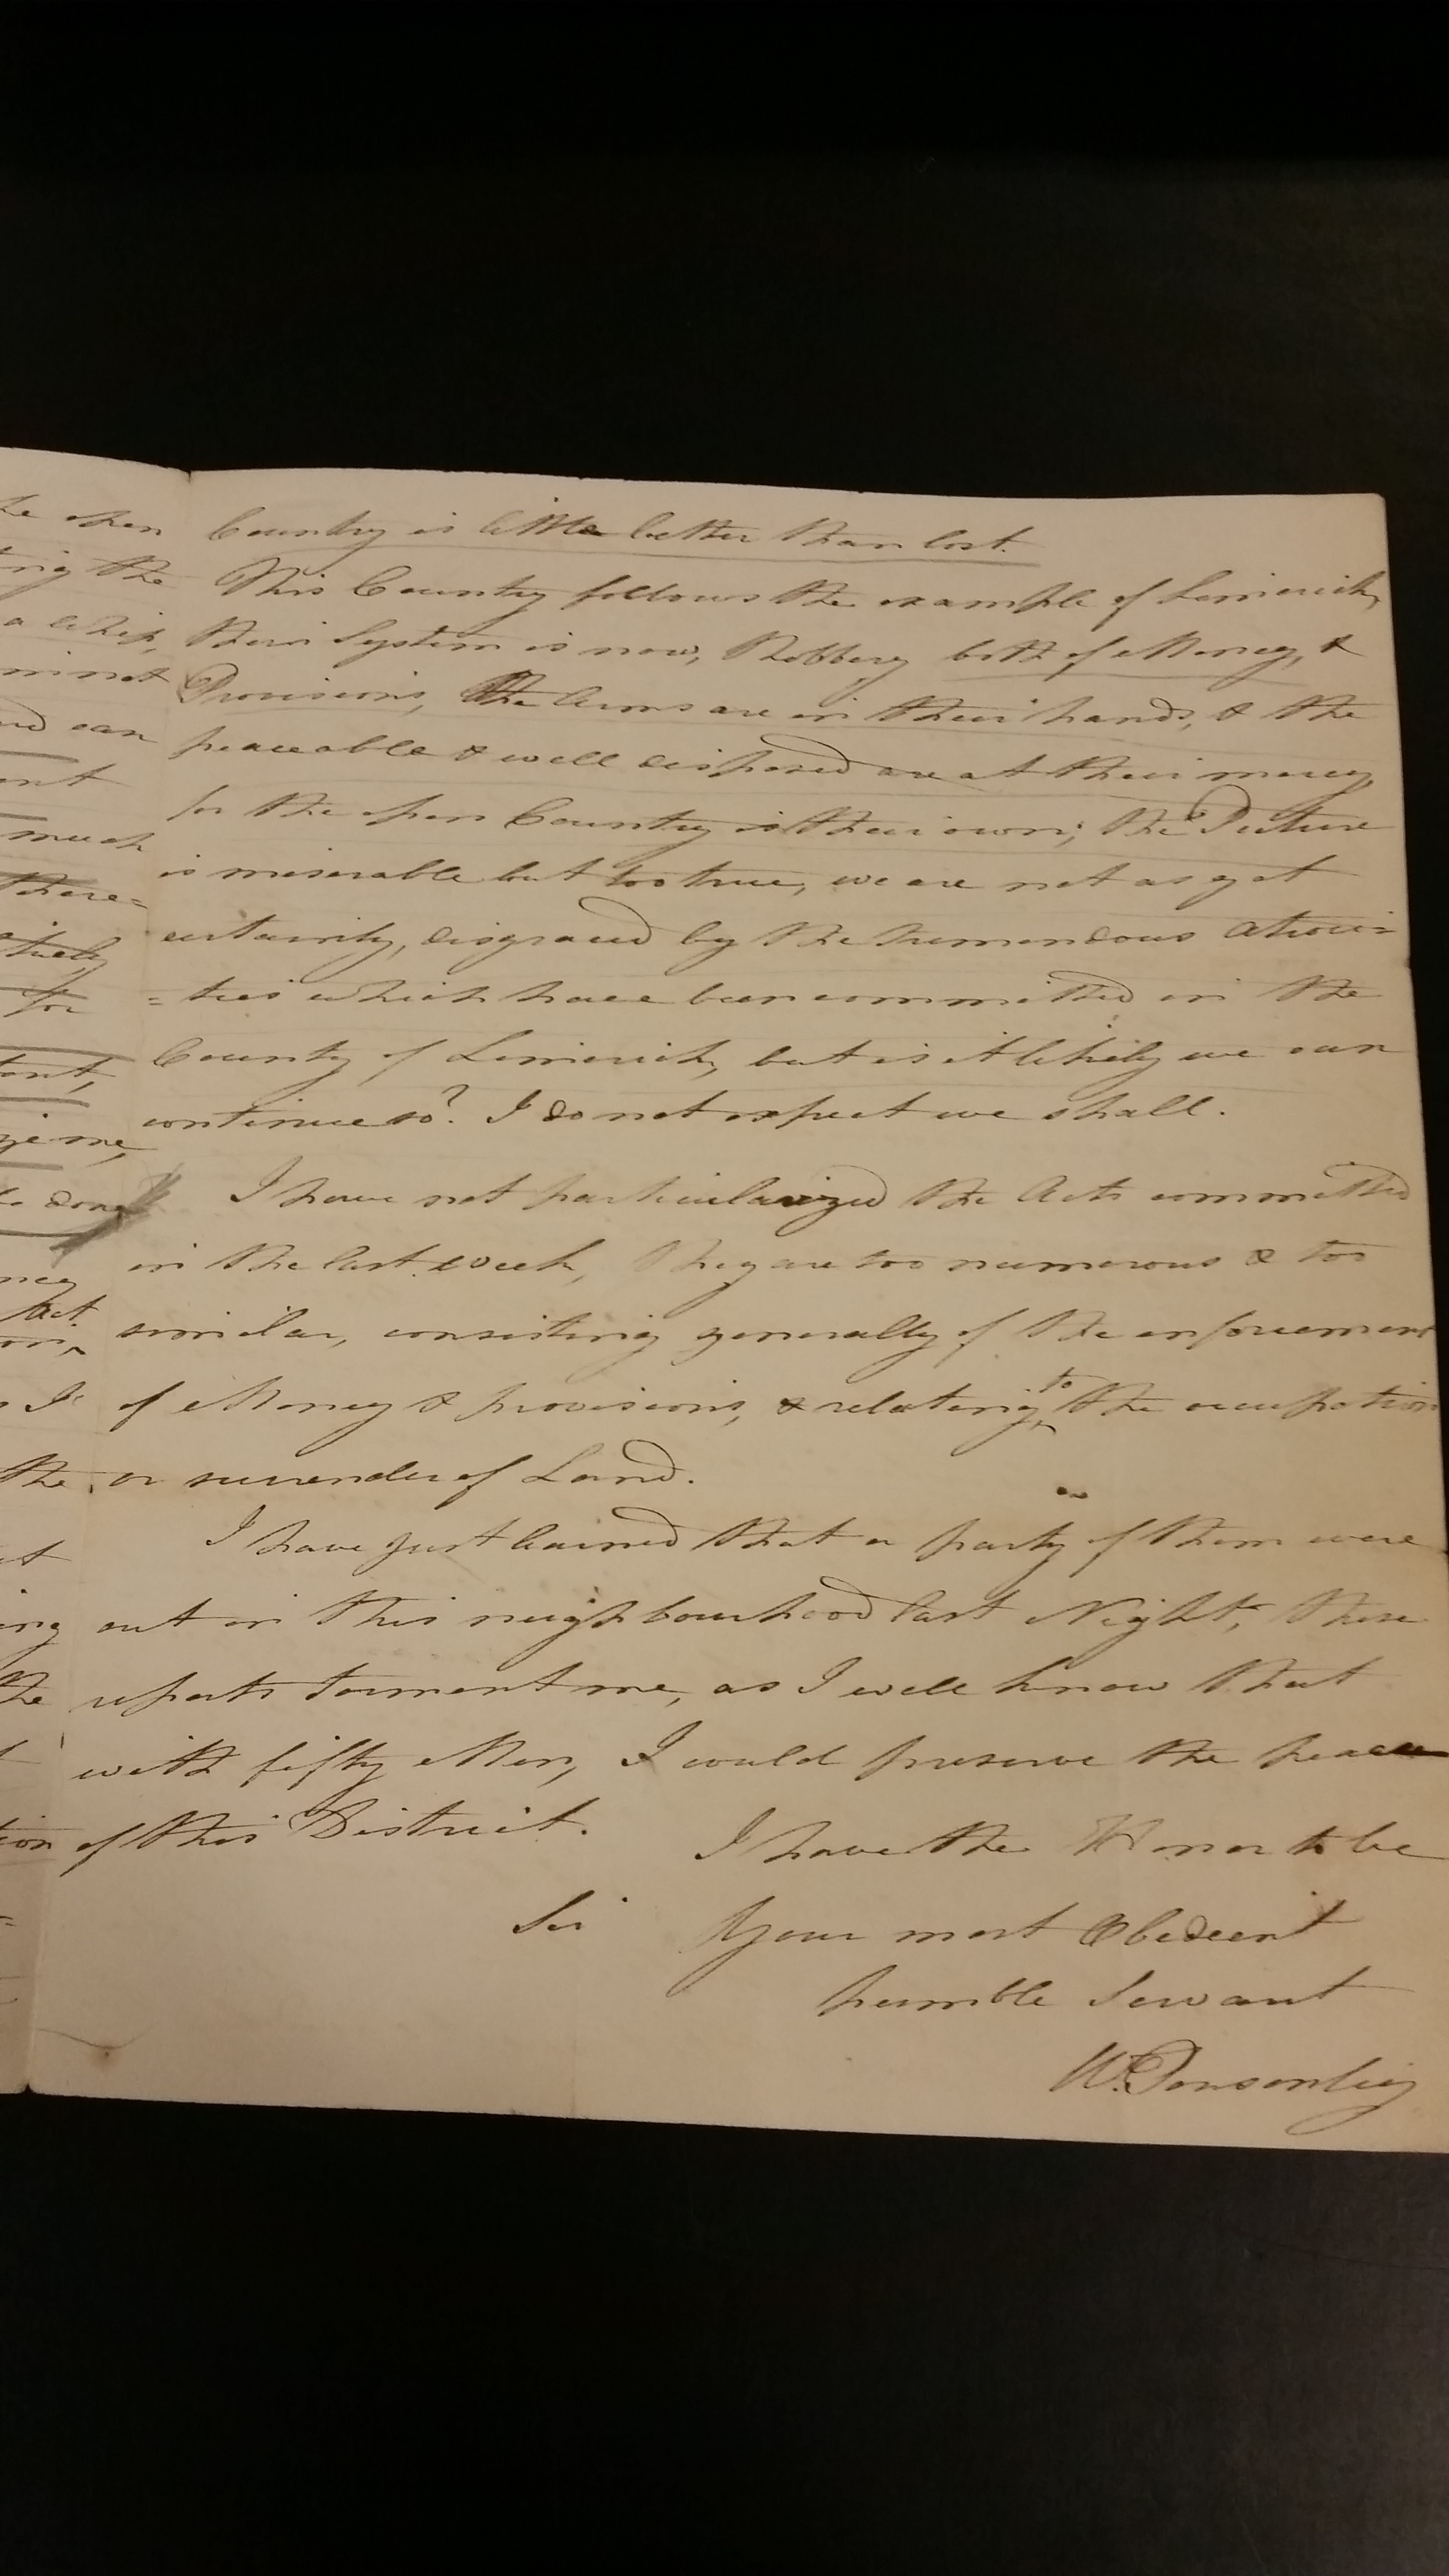 he open
ting the
a whip,
mined
and can
ent
much
there=
for
tent,
me,
to done
ney
Act.
s I
the
ing
the
tion
Country is little better than lost.
This County follows the example of Limerick,
their System is now, Robbery both of Money, &
Provisions, the Arms are in their hands, & the
peaceable & well disposed are at their mercy,
for the open Country is their own; the Picture
is miserable but too true, we are not as yet
certainly, disgraced by the tremendous atroci=
=ties which have been committed in the
County of Limerick, but is it likely we can
continue so? I do not expect we shall.
I have not particularized the Acts committed
in the last week, they are too numerous & too
similar, consisting generally of the enforcement
of Money & provisions, & relating to the occupation
or surrender of Land.
I have just learned that a party of them were
out in this neighbourhood last Night, these
reports torment me, as I well know that
with fifty Men, I could preserve the peace
of this District.
I have the Honor to be
Sir
Your most Obedient
humble Servant
W. Ponsonby